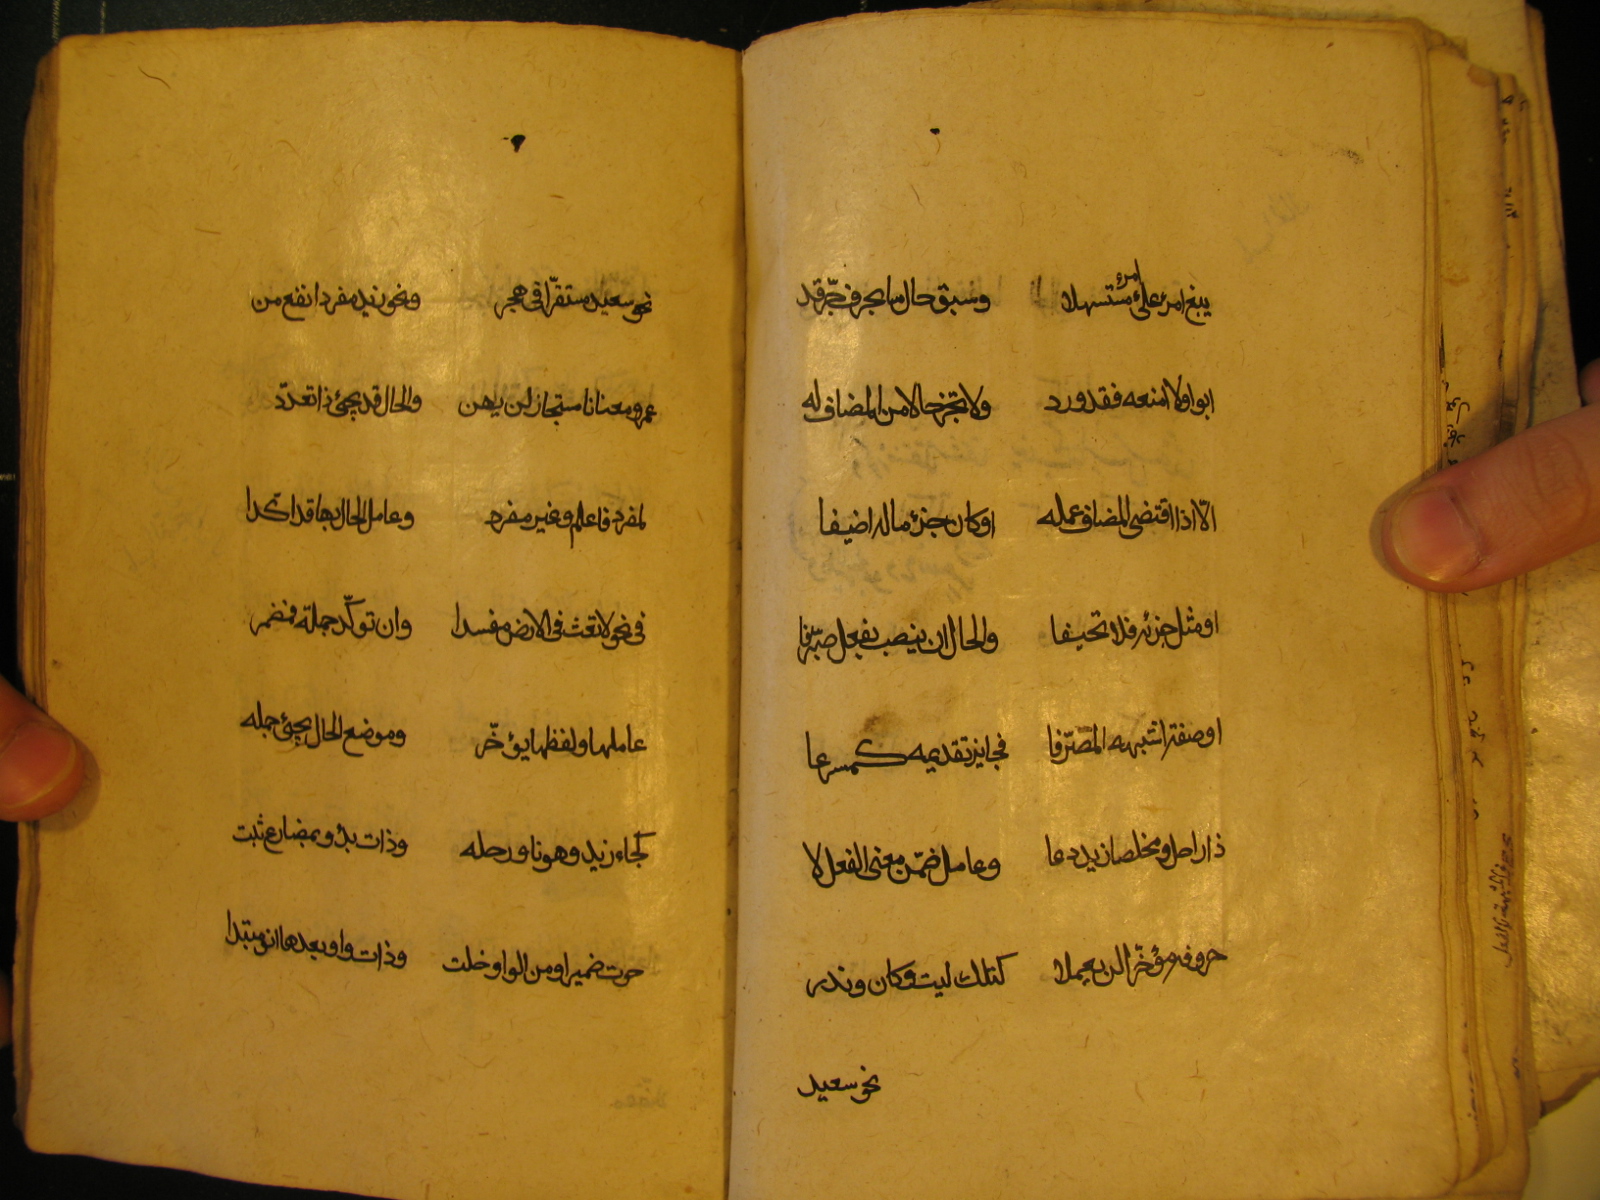 يبغ امرؤ على امرئ مستسهلا وسبق حال ما بحرف جرّ قد
ابوا ولا امنعه فقد ورد ولا تجز حالا من المضاف له
الّا اذا اقتضى المضاف عمله او كان جزء ماله اضيفا
او مثل جزئه فلا تحيفا والحال ان ينصب بفعل صرّفا
او صفة اشبهه المصّرفا فجايز تقديمه كمسرعا
ذا راحل ومخلصا زيد دعا وعامل ضمّن معنى الفعل لا
حروفه مؤخّرا لن يعملا كتلك ليت وكان وندر
نحو سعيد
نحو سعيد مستقرّا فى هجر ونحو زيد مفردا انفع من
عمرو معنانا مستجاز لن يهن والحال قد يجئ ذا تعدّد
لمفرد فاعلم وغير مفرد وعامل الحال بها قد اكّدا
فى نحو لا تعث فى الارض مفسدا وان توكّد جملة فمضمر
عاملها ولفظها يؤخّر وموضع الحال يجئ جمله
كجاء زيد وهو ناو رحله وذات بدؤ بمضارع ثبت
حوت ضميرا ومن الواو خلت وذات واو بعدها انو مبتدا